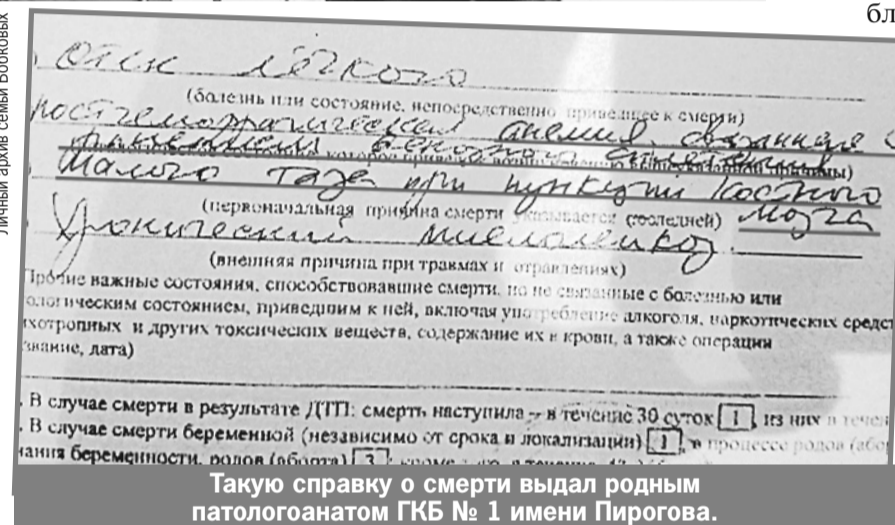 бл
Личный архив семьи Бобковых
Отек лёгкого
(болезнь или состояние, непосредственно приведшее к смерти)
постгеморрагическая анемия связанная с
ранением венозного сплетения
малого таза при пункции костного
мозга
(первоначальная причина смерти указывается последней)
Хронический миелолейкоз
(внешняя причина при травмах и отравлениях)
Прочие важные состояния, способствовавшие смерти, но не связанные с болезнью или
ологическим состоянием, приведшим к ней, включая употребление алкоголя, наркотических средст
ихотропных и других токсических веществ, содержание их в крови, а также операции
звание, дата)
. В случае смерти в результате ДТП: смерть наступила – в течение 30 суток 1, из них в течен
. В случае смерти беременной (независимо от срока и локализации) 1, в процессе родов (або
чания беременности, родов (аборта) 3
Такую справку о смерти выдал родным
патологоанатом ГКБ № 1 имени Пирогова.